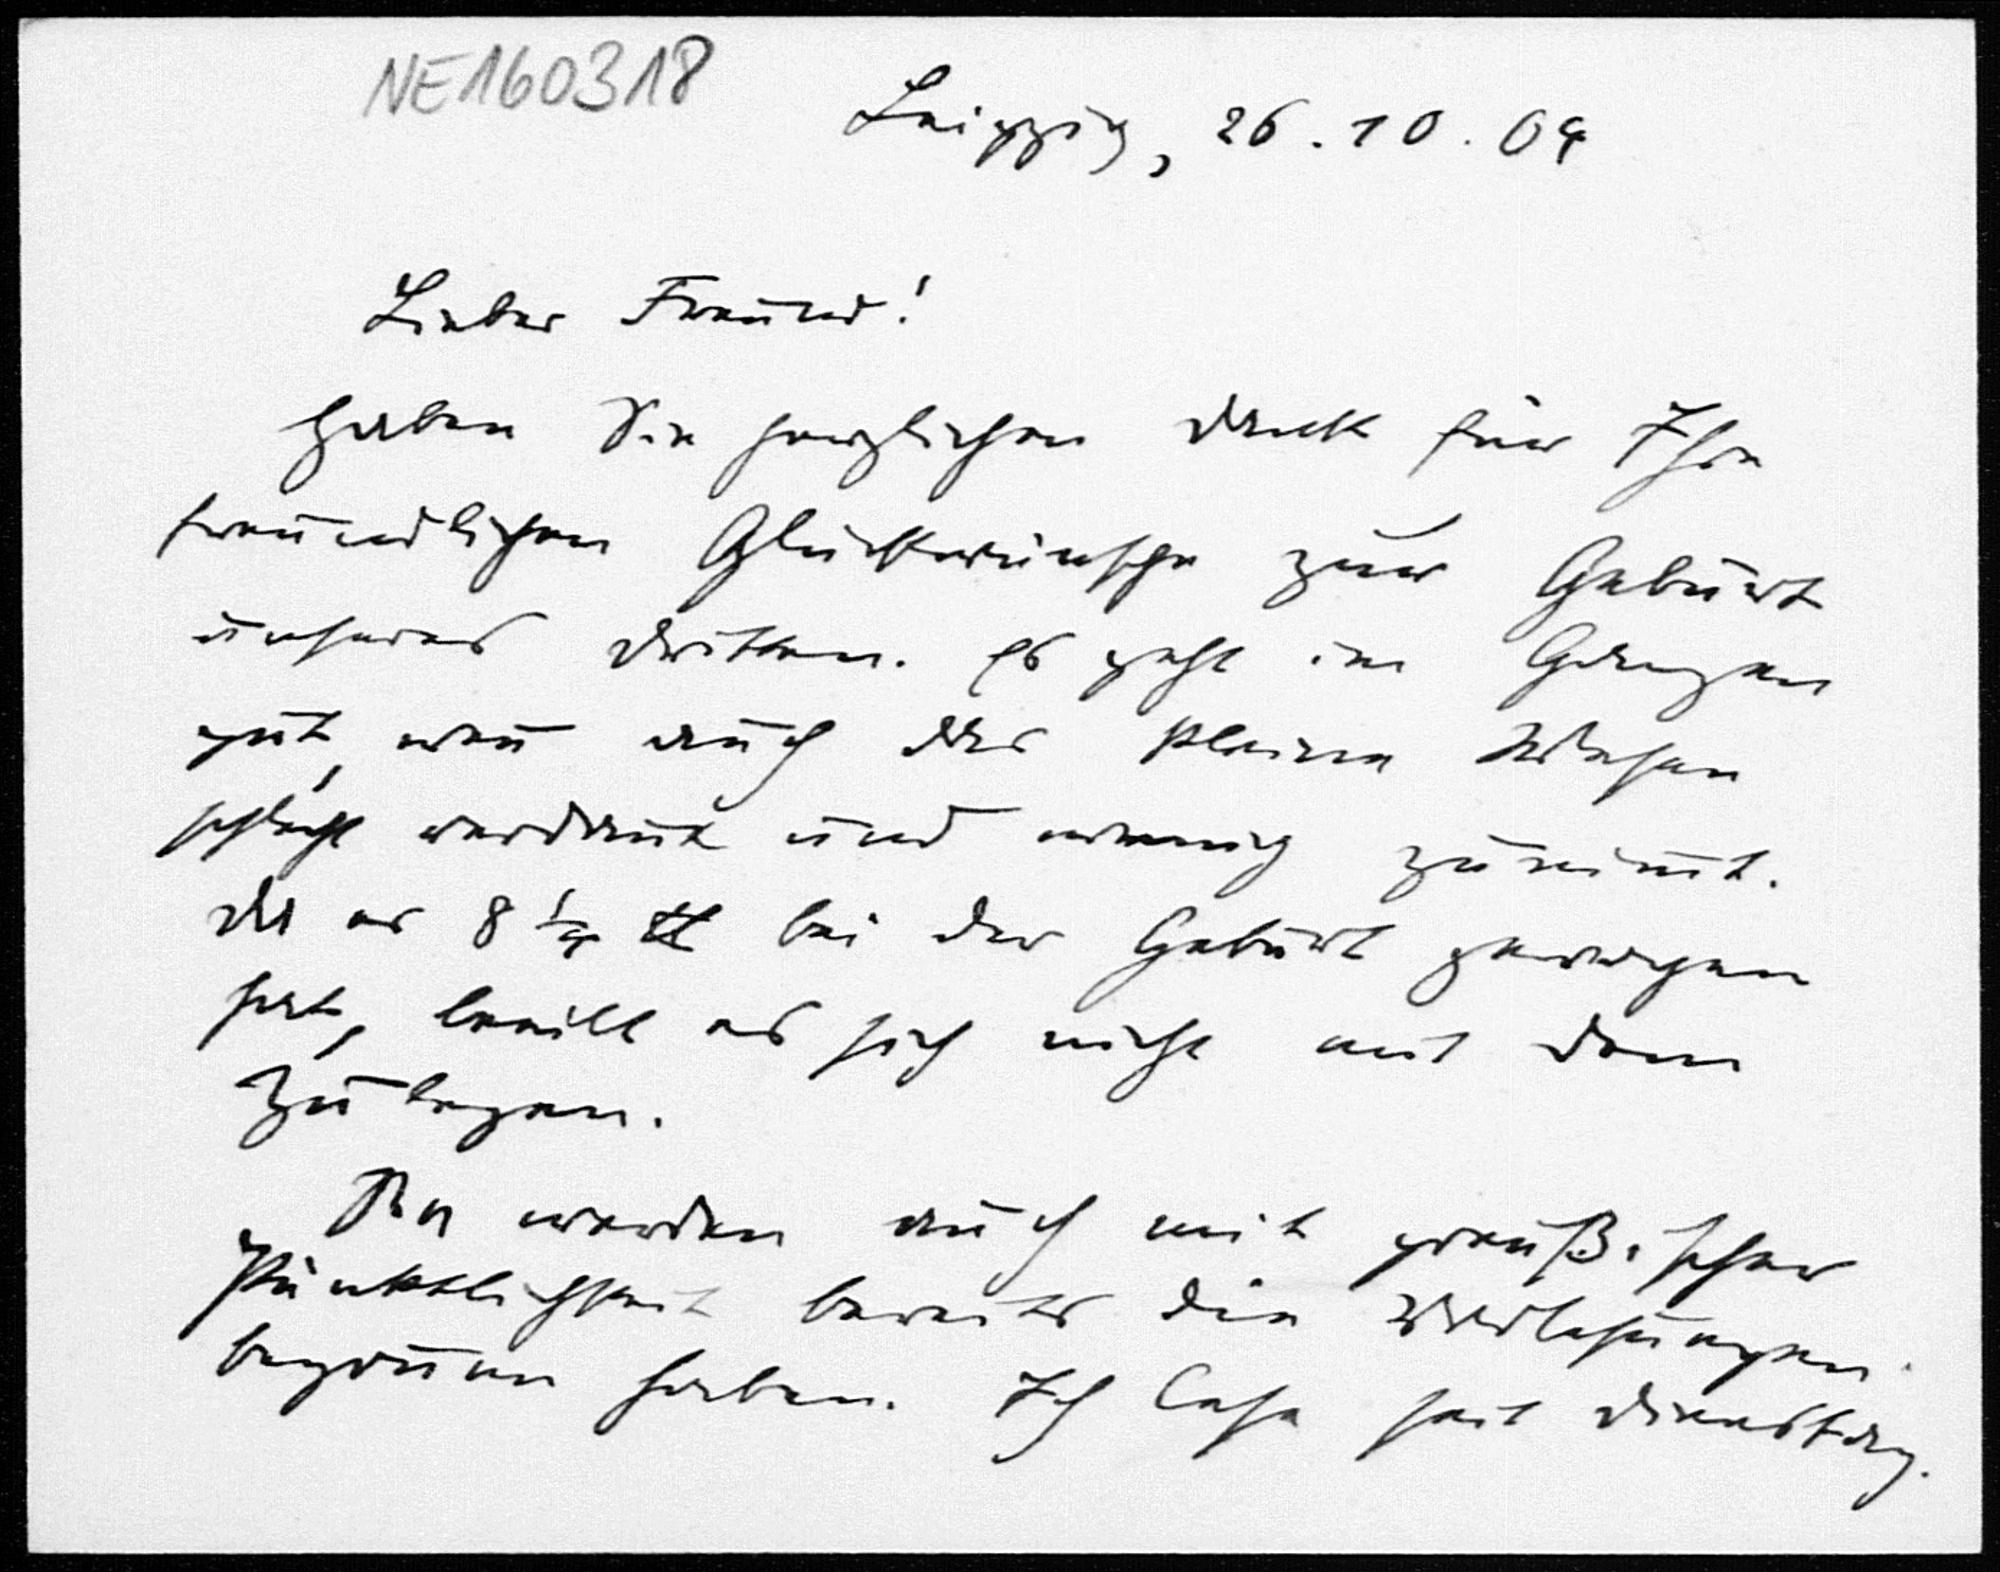 NE160318
Leipzig, 26.10.09
Lieber Freund!
Haben Sie herzlichen Dank für Ihre
freundlichen Glückwünsche zur Geburt
unseres Dritten. Es geht im Ganzen
gut, auch das kleine Wesen
schlecht verdaut und wenig zunimt.
Da es 8 ¼ ℔ bei der Geburt gewogen
hat, beeilt es sich nicht mit dem
Zulegen.
Sie werden auch mit preußischer
Pünktlichkeit bereits die Vorlesungen
begonnen haben. Ich lese seit Dienstag.